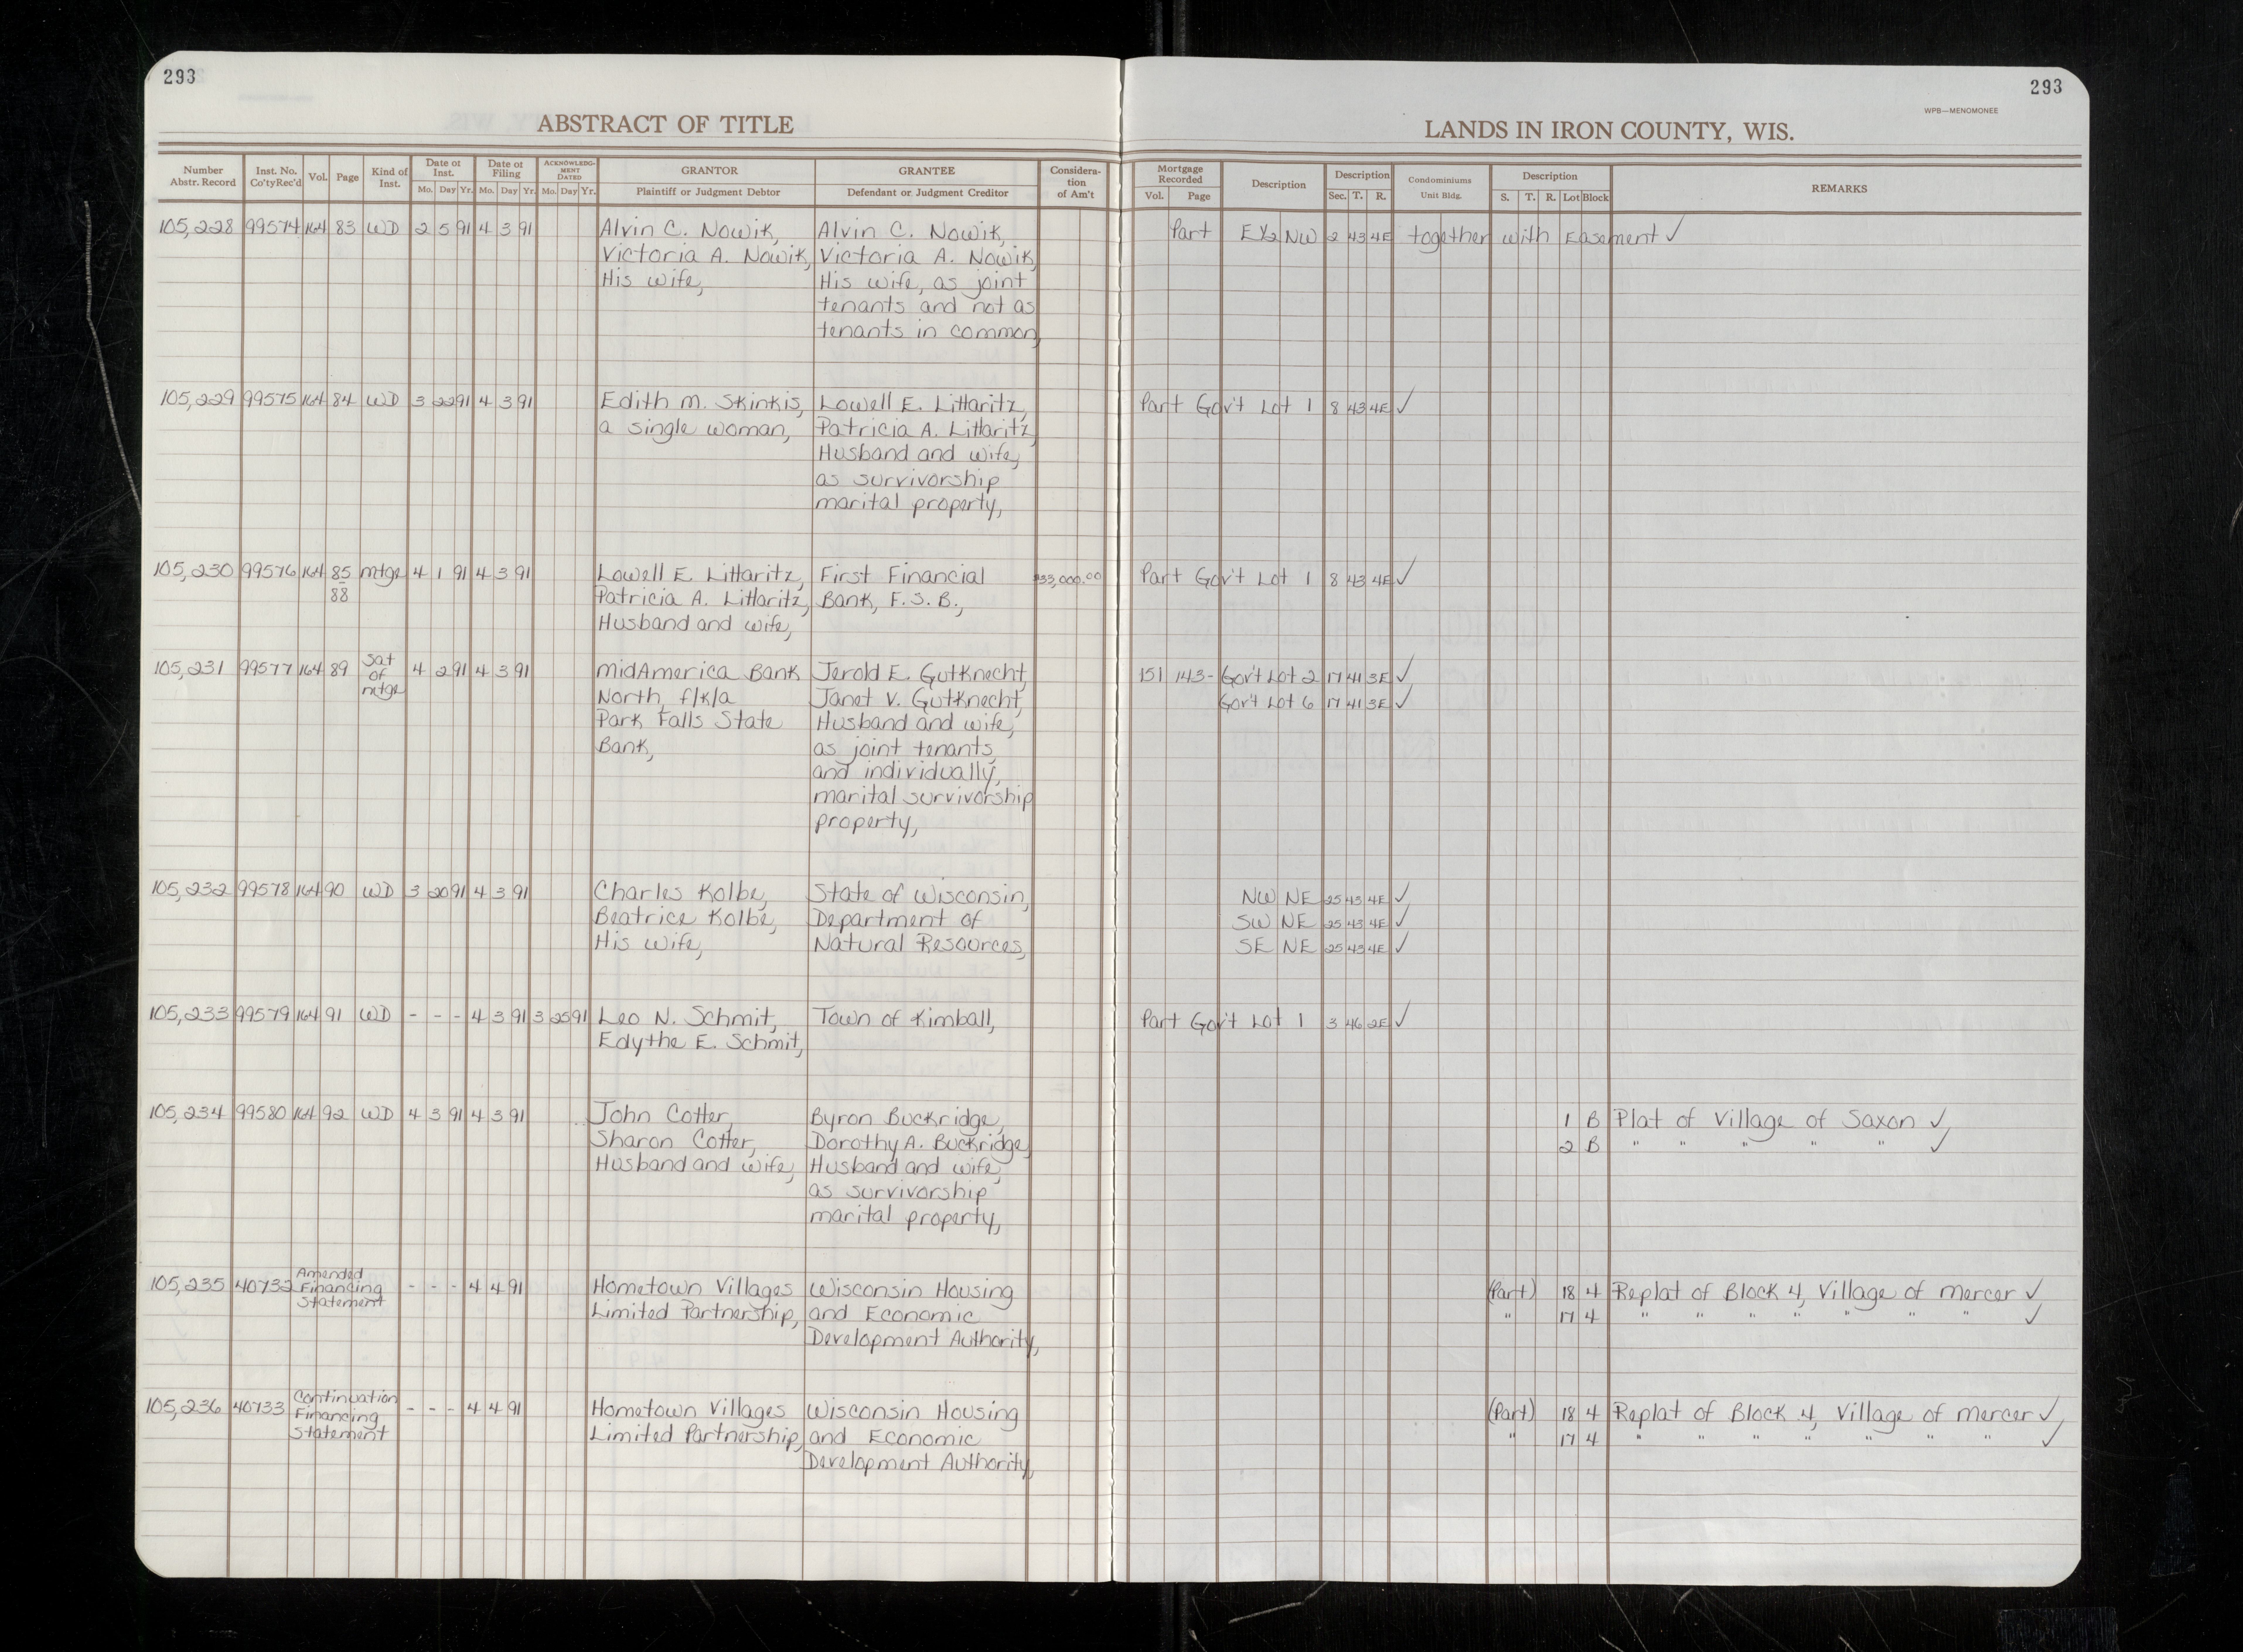 293
293
WPB—MENOMONEE
ABSTRACT OF TITLE
LANDS IN IRON COUNTY, WIS.
Number Abstr. Record | Inst. No. Co'ty Rec'd | Vol. | Page | Kind of Inst. | Date of Inst. Mo. Day Yr. | Date of Filing Mo. Day Yr. | ACKNOWLEDGMENT DATED Mo. Day Yr. | GRANTOR Plaintiff or Judgment Debtor | GRANTEE Defendant or Judgment Creditor | Consideration of Am't | Mortgage Recorded Vol. Page | Description | Description Sec. T. R. | Condominiums Unit Bldg. | Description S. T. R. Lot Block | REMARKS
105,228 99574 164 83 WD 2 5 91 4 3 91 Alvin C. Nowik, Alvin C. Nowik, Part E½ NW 2 43 4E together with Easement ✓
Victoria A. Nowik, Victoria A. Nowik,
His wife, His wife, as joint
tenants and not as
tenants in common,
105,229 99575 164 84 WD 3 22 91 4 3 91 Edith M. Skinkis, Lowell E. Littaritz, Part Gov't Lot 1 8 43 4E ✓
a single woman, Patricia A. Littaritz,
Husband and wife,
as survivorship
marital property,
105,230 99576 164 85 mtge 4 1 91 4 3 91 Lowell E. Littaritz, First Financial $33,000.00 Part Gov't Lot 1 8 43 4E ✓
88 Patricia A. Littaritz, Bank, F.S.B.,
Husband and wife,
105,231 99577 164 89 Sat of mtge 4 2 91 4 3 91 MidAmerica Bank Jerold E. Gutknecht, 151 143- Gov't Lot 2 17 41 3E ✓
North, f/k/a Janet V. Gutknecht, Gov't Lot 6 17 41 3E ✓
Park Falls State Husband and wife,
Bank, as joint tenants
and individually,
marital survivorship
property,
105,232 99578 164 90 WD 3 20 91 4 3 91 Charles Kolbe, State of Wisconsin, NW NE 25 43 4E ✓
Beatrice Kolbe, Department of SW NE 25 43 4E ✓
His wife, Natural Resources, SE NE 25 43 4E ✓
105,233 99579 164 91 WD - - - 4 3 91 3 25 91 Leo N. Schmit, Town of Kimball, Part Gov't Lot 1 3 46 2E ✓
Edythe E. Schmit,
105,234 99580 164 92 WD 4 3 91 4 3 91 John Cotter, Byron Buckridge, 1 B Plat of Village of Saxon ✓
Sharon Cotter, Dorothy A. Buckridge, 2 B " " " " " ✓
Husband and wife, Husband and wife,
as survivorship
marital property,
105,235 40732 Amended Financing Statement - - - 4 4 91 Hometown Villages Wisconsin Housing (Part) 18 4 Replat of Block 4, Village of Mercer ✓
Limited Partnership, and Economic " 17 4 " " " " " " " ✓
Development Authority,
105,236 40733 Continuation Financing Statement - - - 4 4 91 Hometown Villages Wisconsin Housing (Part) 18 4 Replat of Block 4, Village of Mercer ✓
Limited Partnership, and Economic " 17 4 " " " " " " " ✓
Development Authority,